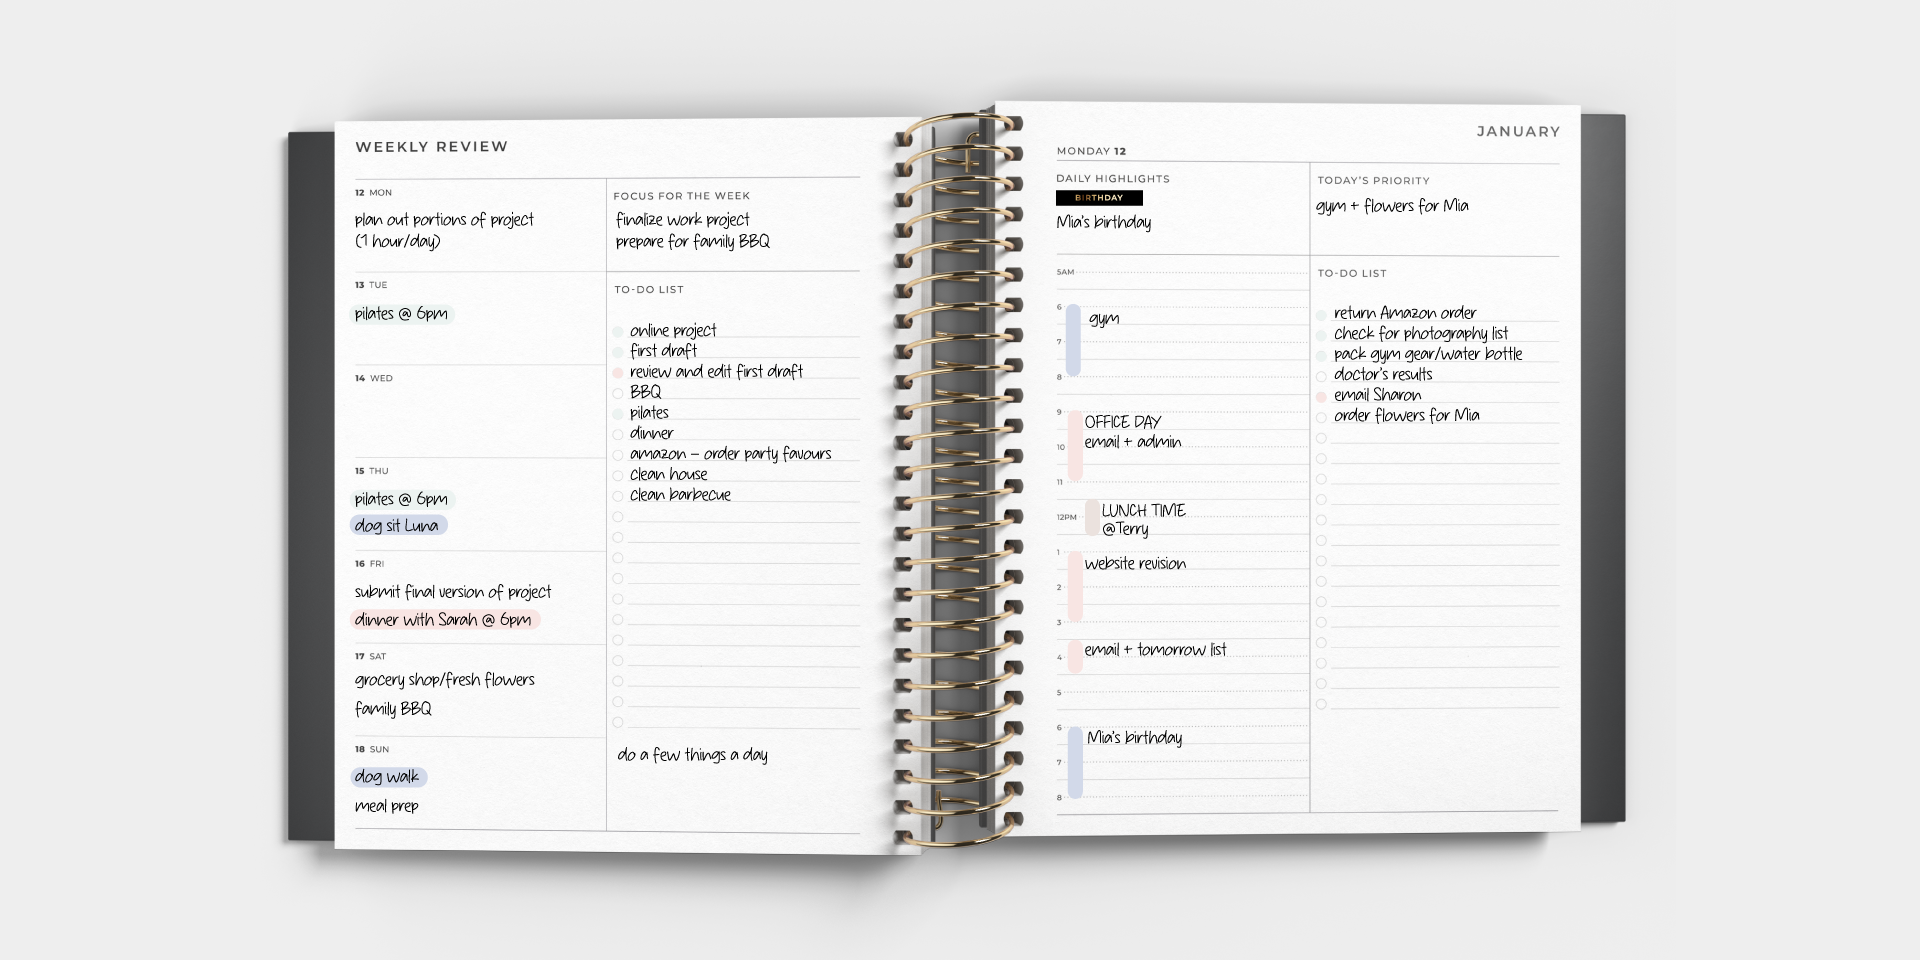 WEEKLY REVIEW
12 MON
plan out portions of project
(1 hour/day)
13 TUE
pilates @ 6pm
14 WED
15 THU
pilates @ 6pm
dog sit Luna
16 FRI
submit final version of project
dinner with Sarah @ 6pm
17 SAT
grocery shop/fresh flowers
family BBQ
18 SUN
dog walk
meal prep
FOCUS FOR THE WEEK
finalize work project
prepare for family BBQ
TO-DO LIST
online project
first draft
review and edit first draft
BBQ
pilates
dinner
amazon – order party favours
clean house
clean barbecue
do a few things a day
JANUARY
MONDAY 12
DAILY HIGHLIGHTS
BIRTHDAY
Mia's birthday
5AM
6
gym
7
8
9
OFFICE DAY
10
email + admin
11
LUNCH TIME
12PM
@Terry
1
website revision
2
3
email + tomorrow list
4
5
6
Mia's birthday
7
8
TODAY'S PRIORITY
gym + flowers for Mia
TO-DO LIST
return Amazon order
check for photography list
pack gym gear/water bottle
doctor's results
email Sharon
order flowers for Mia